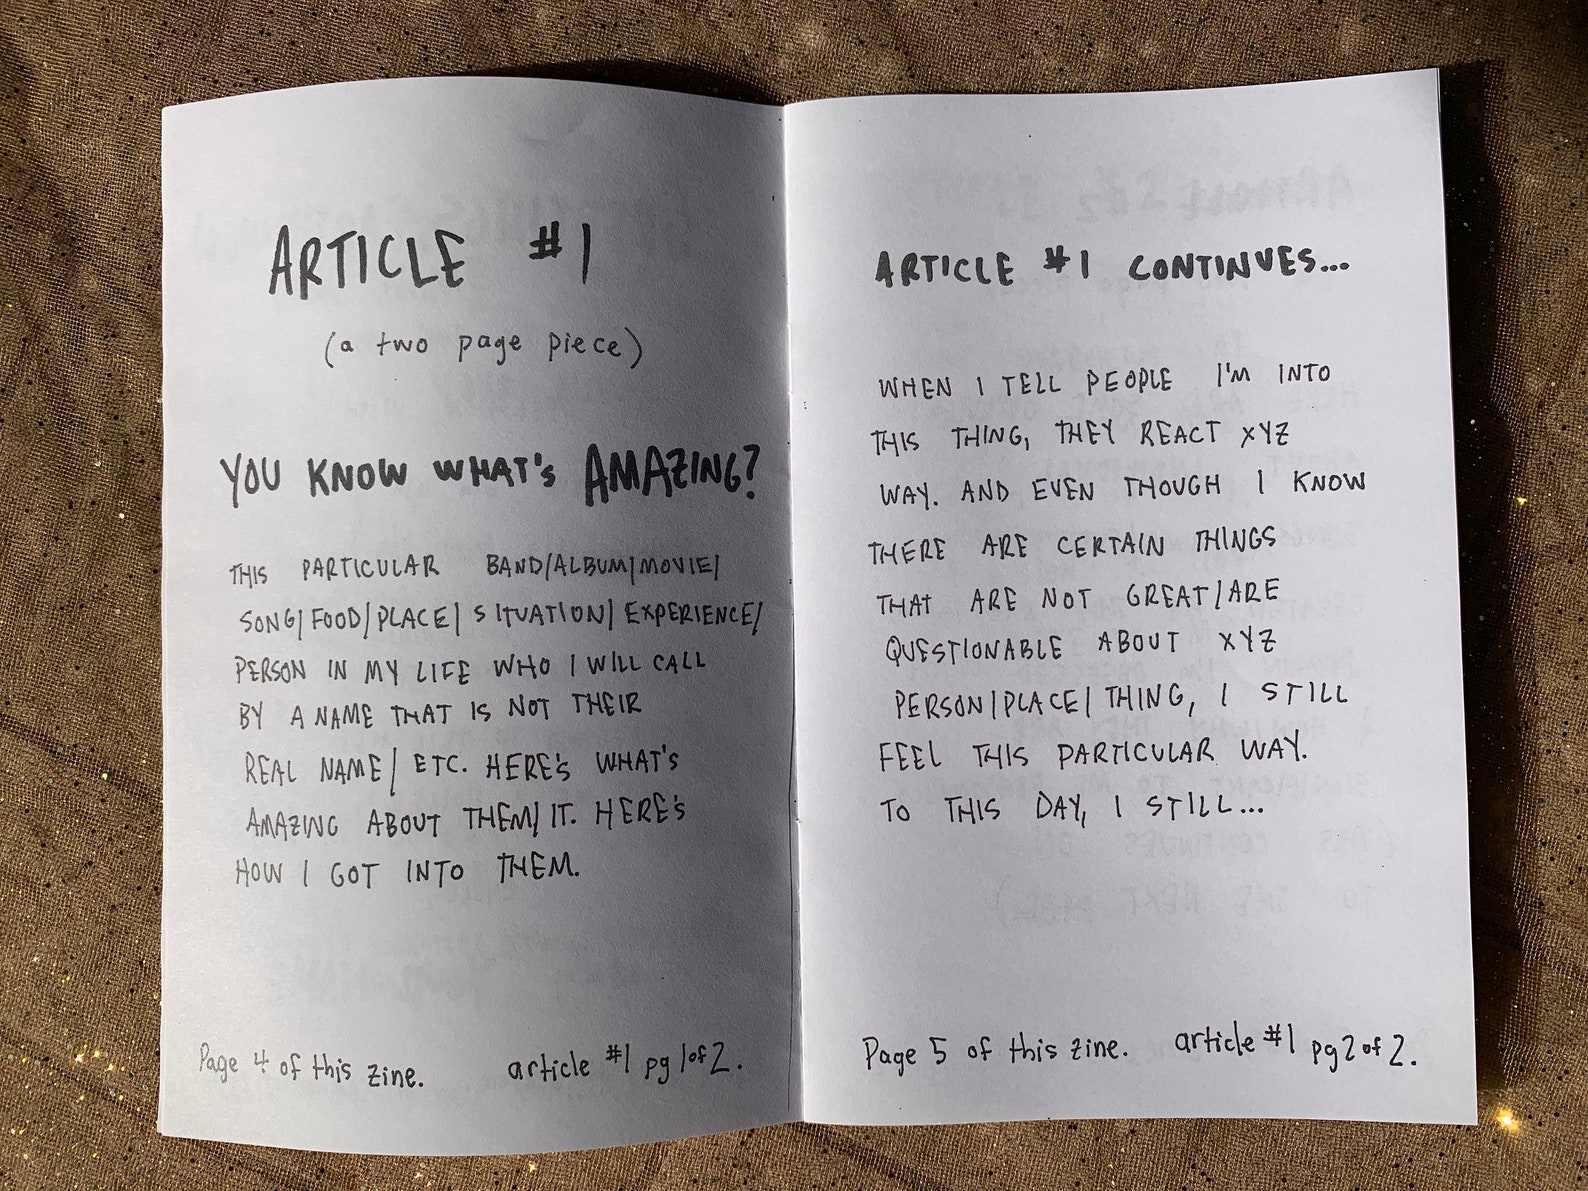 ARTICLE #1
(a two page piece)
YOU KNOW WHAT'S AMAZING?
THIS PARTICULAR BAND/ALBUM/MOVIE/
SONG/FOOD/PLACE/SITUATION/EXPERIENCE/
PERSON IN MY LIFE WHO I WILL CALL
BY A NAME THAT IS NOT THEIR
REAL NAME/ETC. HERE'S WHAT'S
AMAZING ABOUT THEM/IT. HERE'S
HOW I GOT INTO THEM.
Page 4 of this zine. article #1 pg 1 of 2.
ARTICLE #1 CONTINUES...
WHEN I TELL PEOPLE I'M INTO
THIS THING, THEY REACT XYZ
WAY. AND EVEN THOUGH I KNOW
THERE ARE CERTAIN THINGS
THAT ARE NOT GREAT/ARE
QUESTIONABLE ABOUT XYZ
PERSON/PLACE/THING, I STILL
FEEL THIS PARTICULAR WAY.
TO THIS DAY, I STILL...
Page 5 of this zine. article #1 pg 2 of 2.